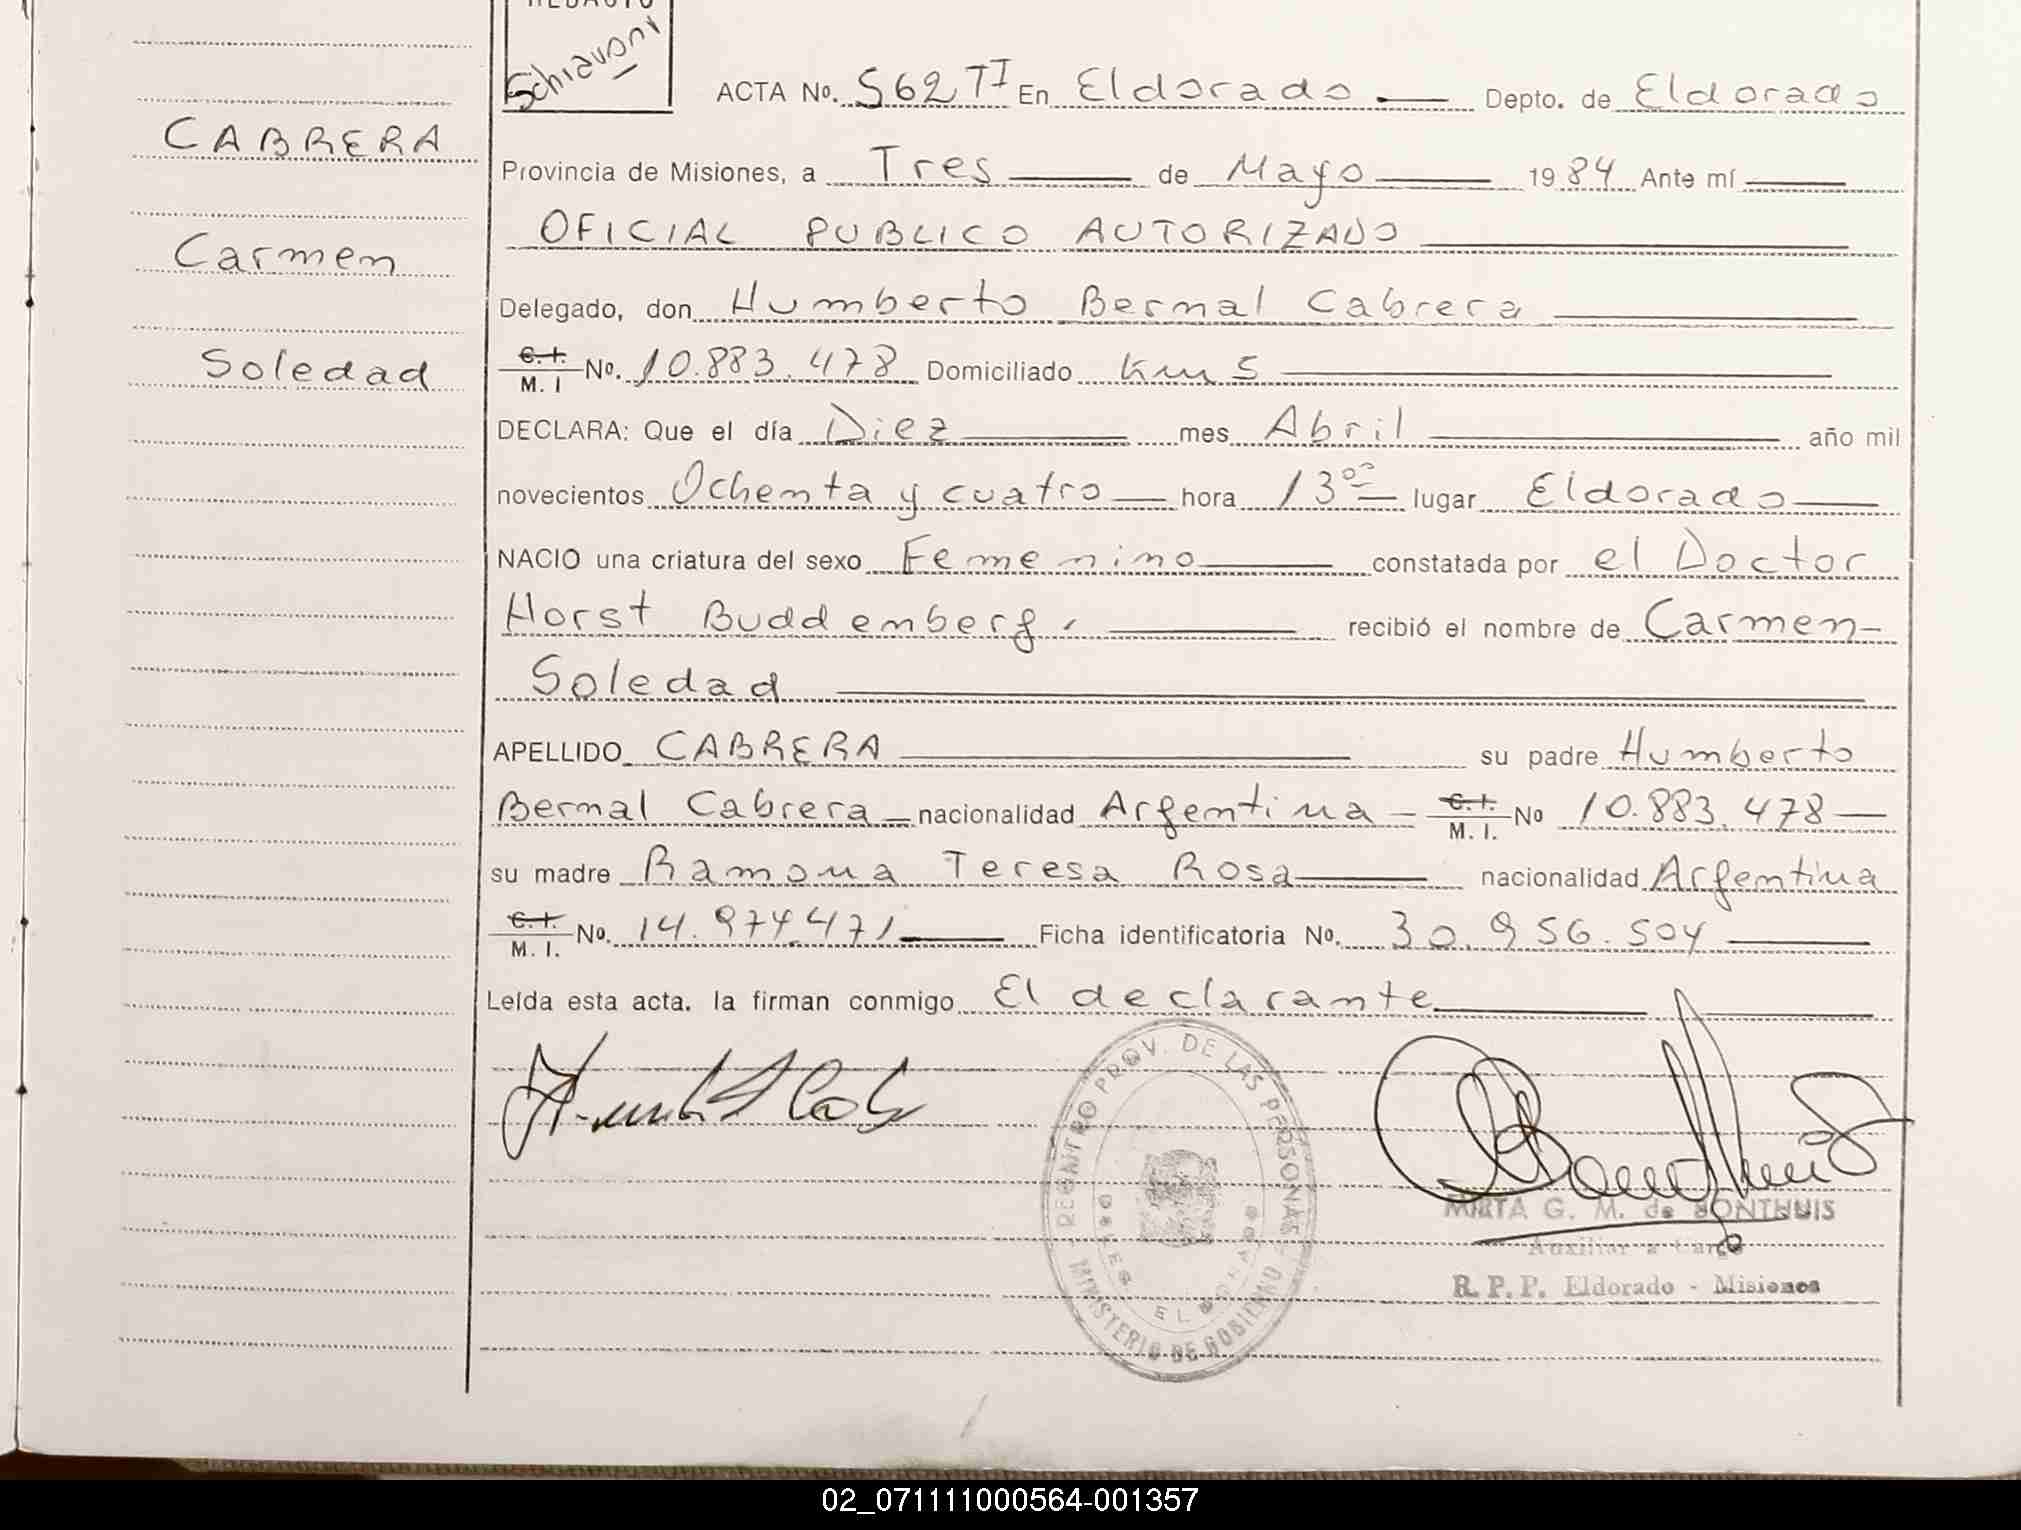 REDACTO
Schiavoni
CABRERA
Carmen
Soledad
ACTA No. 562 TI En Eldorado Depto. de Eldorado
Provincia de Misiones, a Tres de Mayo 1984 Ante mí
OFICIAL PUBLICO AUTORIZADO
Delegado, don Humberto Bernal Cabrera
C.I. M.I No. 10.883.478 Domiciliado Km 5
DECLARA: Que el día Diez mes Abril año mil
novecientos Ochenta y cuatro hora 13⁰⁰ lugar Eldorado
NACIO una criatura del sexo Femenino constatada por el Doctor
Horst Buddemberg. recibió el nombre de Carmen
Soledad
APELLIDO CABRERA su padre Humberto
Bernal Cabrera nacionalidad Argentina C.I. M.I. No 10.883.478
su madre Ramona Teresa Rosa nacionalidad Argentina
C.I. M.I. No. 14.974.471 Ficha identificatoria No. 30.956.504
Leída esta acta. la firman conmigo El declarante
REGISTRO PROV. DE LAS PERSONAS
MINISTERIO DE GOBIERNO
ELDORADO
MIRTA G. M. de BONTHUIS
Auxiliar a Cargo
R. P. P. Eldorado - Misiones
02_071111000564-001357